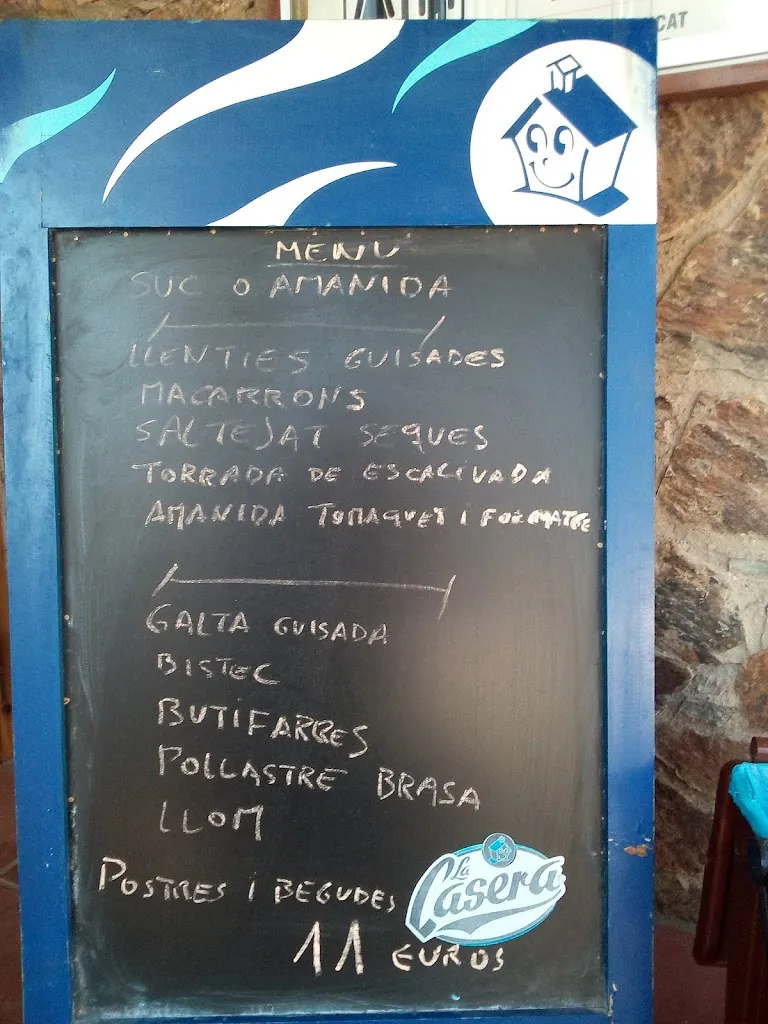 CAT
MENU
SUC O AMANIDA
LLENTIES GUISADES
MACARRONS
SALTEJAT SEQUES
TORRADA DE ESCALIVADA
AMANIDA TOMAQUET i FORMATGE
GALTA GUISADA
BISTEC
BUTIFARRES
POLLASTRE BRASA
LLOM
POSTRES i BEGUDES
La Casera
11 EUROS